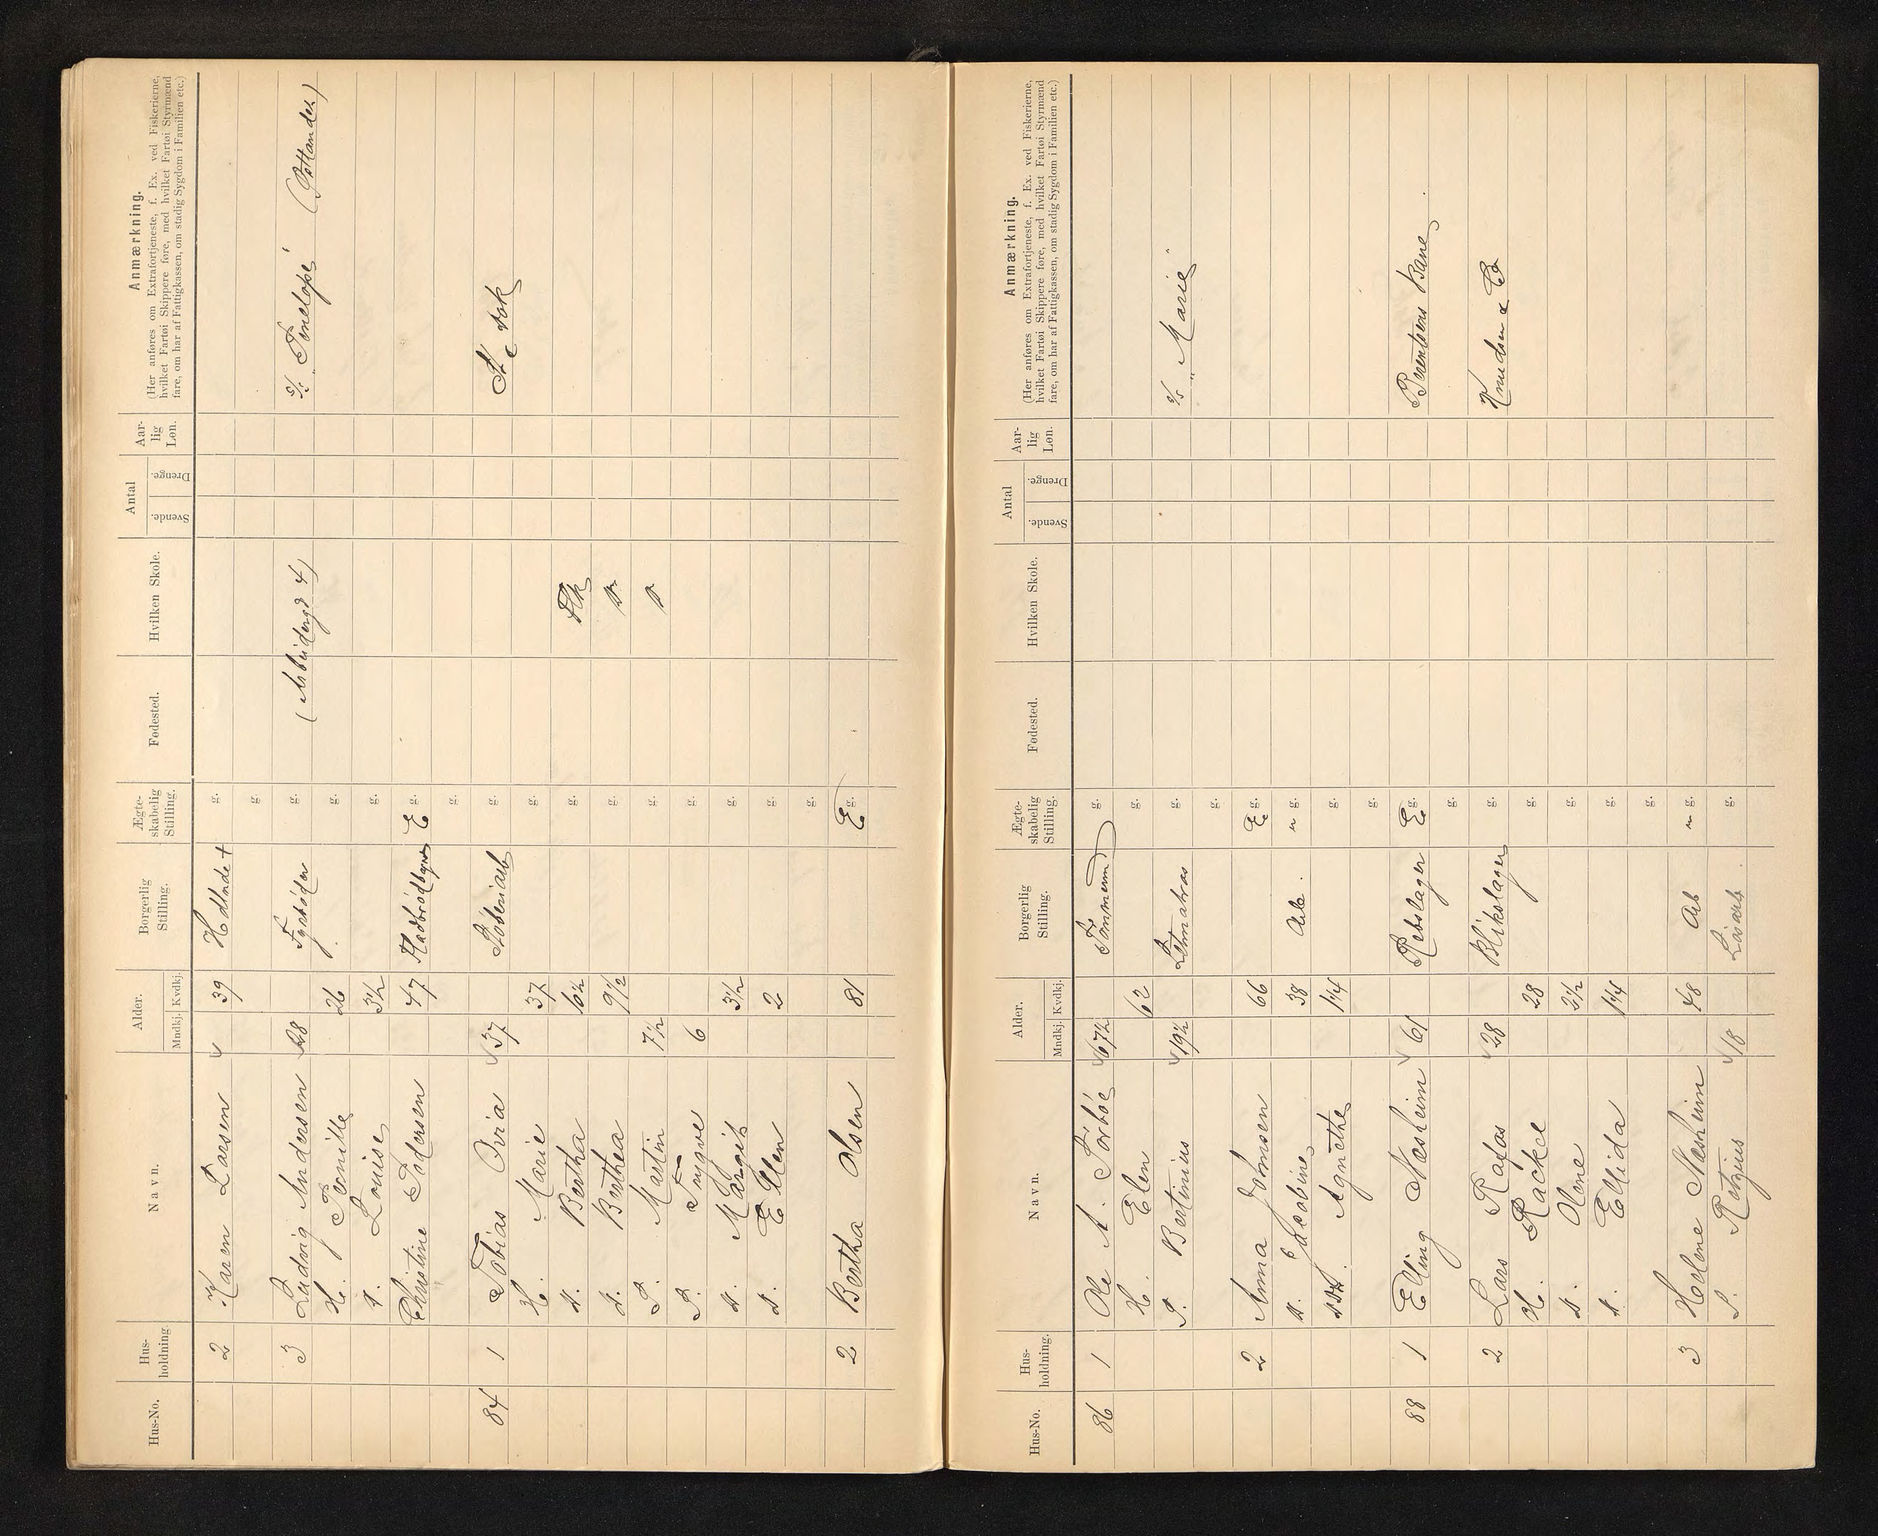 Hus-No. Hus-holdning. Navn. Alder. Mndkj. Kvdkj. Borgerlig Stilling. Ægte-skabelig Stilling. Fødested. Hvilken Skole. Antal Svende. Drenge. Aar-lig Løn. Anmærkning.
(Her anføres om Extrafortjeneste, f. Ex. ved Fiskerierne,
hvilket Fartøi Skippere føre, med hvilket Fartøi Styrmænd
fare, om har af Fattigkassen, om stadig Sygdom i Familien etc.)
2 Karen Larsen 39 g.
g.
3 Ludvig Andersen 28 Fyrbøder g. (Arbeidergd 4) S/s "Penelope"
H. Pernille 26 g.
D. Louise 3½ g.
Christine Pedersen 47 Fladbrødbager E g.
g.
84 1 Tobias Ovia 37 Støberiarb g.
H. Marie 37 g.
D. Bertha 10½ g.
D. Berthea 9½ g.
S. Martin 7½ g.
S. Trygve 6 g.
D. Margit 3½ g.
D. Ellen 2 g.
g.
2 Bertha Olsen 81 E g.
Hus-No. Hus-holdning. Navn. Alder. Mndkj. Kvdkj. Borgerlig Stilling. Ægte-skabelig Stilling. Fødested. Hvilken Skole. Antal Svende. Drenge. Aar-lig Løn. Anmærkning.
(Her anføres om Extrafortjeneste, f. Ex. ved Fiskerierne,
hvilket Fartøi Skippere føre, med hvilket Fartøi Styrmænd
fare, om har af Fattigkassen, om stadig Sygdom i Familien etc.)
86 1 Ole A. 67½ Tømmermd g.
H. Elen 62 g.
S. Bertinius 19½ Letmatros g. S/s "Marie"
g.
2 Anna Johnsen 66 E g.
D. Jacobine 38 Arb. " g.
Agnethe 14 g.
g.
88 1 Elling Næsheim 61 Rebslager E g. Berentsens Bane
g.
2 Lars 28 Blikslager g. Knudsen & Co
H. Rackel 28 g.
D. Olene 2½ g.
D. Ellida 1¼ g.
g.
3 Helene Næsheim 48 Arb " g.
S. Retzius 18 Løsarb g.